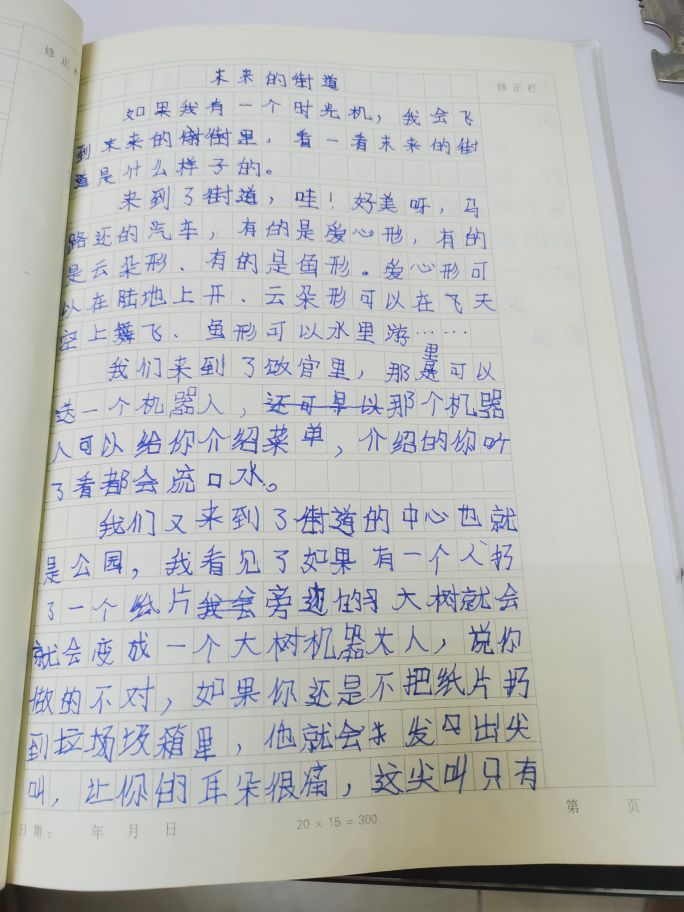 修正栏
修正栏
未来的街道
如果我有一个时光机，我会飞
到未来的街里，看一看未来的街
道是什么样子的。
来到了街道，哇！好美呀，马
路还的汽车，有的是爱心形，有的
是云朵形、有的是鱼形。爱心形可
以在陆地上开、云朵形可以在飞天
空上舞飞、鱼形可以水里游……
我们来到了饭官里，那里是可以
送一个机器人，还可早以那个机器
人可以给你介绍菜单，介绍的你听
了看都会流口水。
我们又来到了街道的中心也就
是公园，我看见了如果有一个人扔
了一个纸片我会旁边的大树就会
就会变成一个大树机器大人，说你
做的不对，如果你还是不把纸片扔
到垃场圾箱里，他就会发出尖
叫，让你的耳朵很痛，这尖叫只有
日期： 年 月 日
20 × 15 = 300
第 页